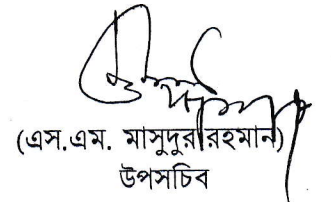 (এস.এম. মাসুদুর রহমান)
উপসচিব